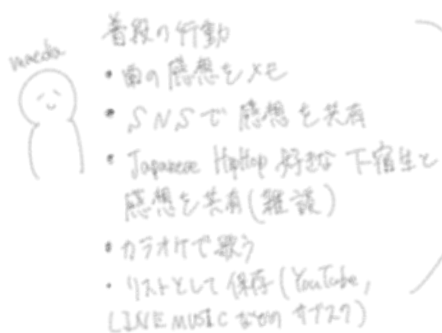 maeda
普段の行動
・曲の感想をメモ
・SNSで感想を共有
・Japanese HipHop 好きな下宿生と
感想を共有(雑談)
・カラオケで歌う
・リストとして保存(YouTube,
LINE MUSICなどのサブスク)